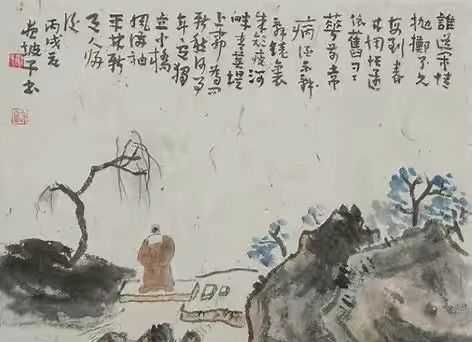 誰道閑情
拋擲了久
每到春
來惆悵還
依舊日日
華前常
病酒不辭
鏡裏
朱顏瘦河
畔青蕪堤
上柳為問
新愁何事
年年有獨
立小橋
風滿袖
平林新
月人歸
後
丙戌